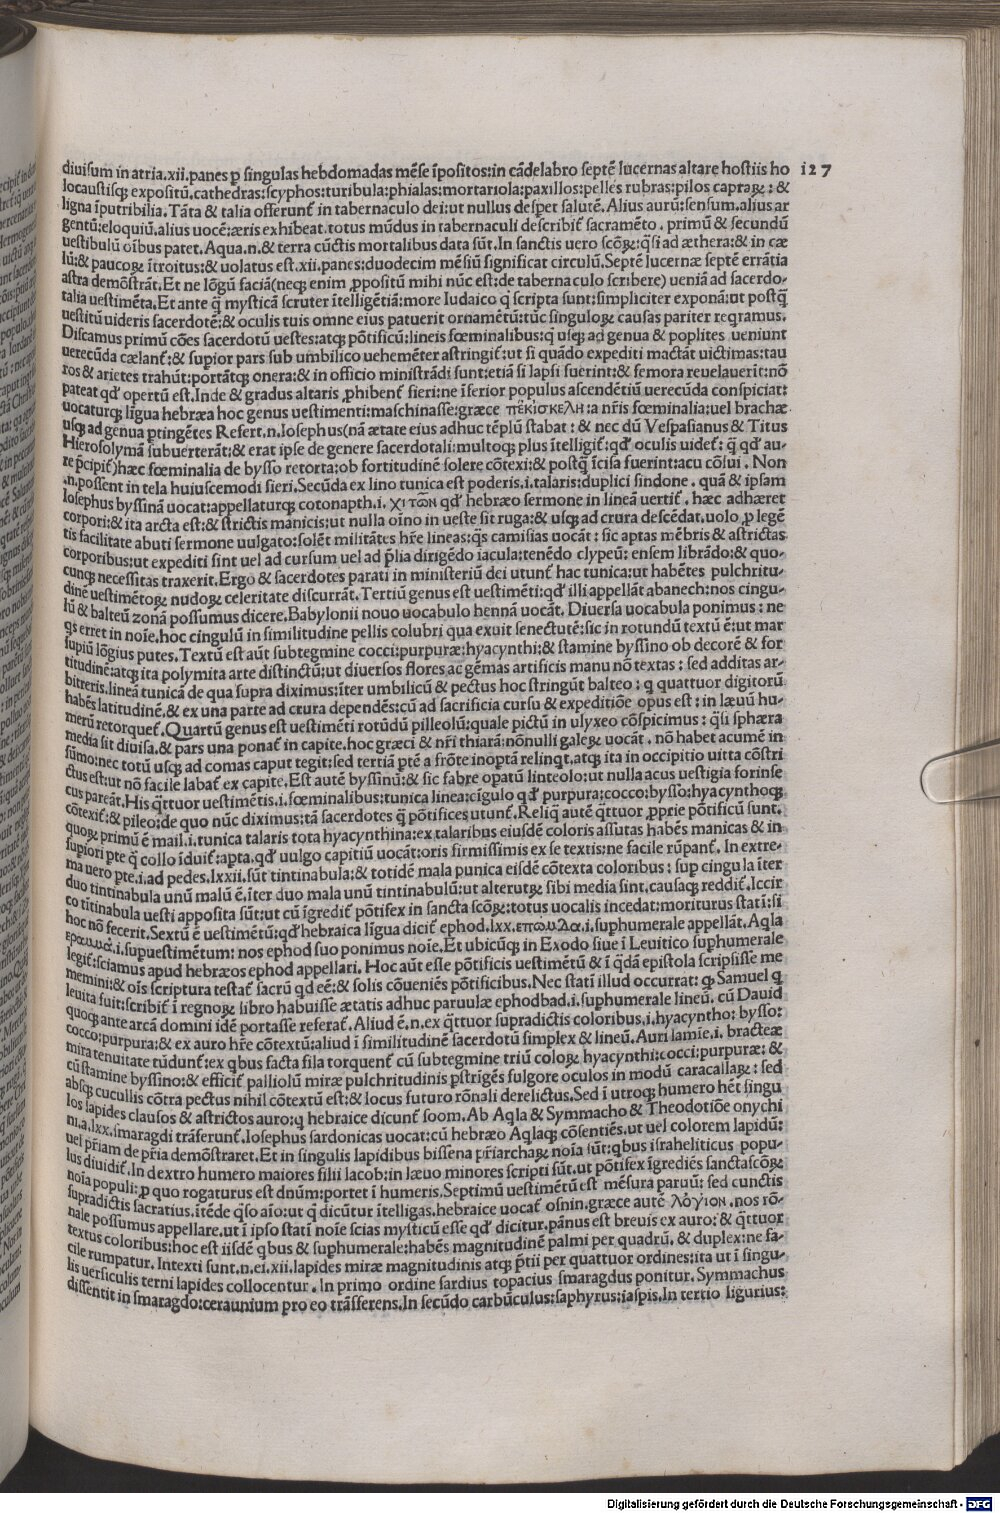 diuisum in atria.xii.panes p singulas hebdomadas mēse īpositos:in cādelabro septē lucernas altare hostiis ho
127
locaustisq; expositū.cathedras:scyphos:turibula:phialas:mortariola:paxillos:pelles rubras:pilos caprarꝫ:&
ligna īputribilia.Tāta & talia offerunt̄ in tabernaculo dei:ut nullus despet salutē.Alius aurū:sensum.alius ar
gentū:eloquiū.alius uocē:æris exhibeat.totus mūdus in tabernaculi describit̄ sacramēto. primū & secundū
uestibulū oībus patet.Aqua.n.& terra cūctis mortalibus data sūt.In sanctis uero scōꝝ:q̄si ad æthera:& in cæ
lū:& paucoꝝ ītroitus:& uolatus est.xii.panes:duodecim mēsiū significat circulū.Septē lucernæ septē errātia
astra demōstrāt.Et ne lōgū faciā(neq; enim ꝓpositū mihi nūc est:de tabernaculo scribere) ueniā ad sacerdo-
talia uestimēta.Et ante q̄ mysticā scruter ītelligētiā:more Iudaico q̄ scripta sunt:simpliciter exponā:ut postq̄
uestitū uideris sacerdotē:& oculis tuis omne eius patuerit ornamētū:tūc singuloꝝ causas pariter reqramus.
Discamus primū cōes sacerdotū uestes:atq; pōtificū:lineis fœminalibus:q̄ usq; ad genua & poplites ueniunt
uerecūda cælant̄:& supior pars sub umbilico uehemēter astringit̄:ut si quādo expediti mactāt uictimas:tau
ros & arietes trahūt:portātq; onera:& in officio ministrādi sunt:etiā si lapsi fuerint:& femora reuelauerit:nō
pateat qd̄ opertū est.Inde & gradus altaris ꝓhibent̄ fieri:ne īferior populus ascendētiū uerecūda conspiciat:
uocaturq; līgua hebræa hoc genus uestimenti:maschinasse:græce πεκισκελη:a nr̄is fœminalia:uel brachæ
usq; ad genua ꝑtingētes Refert.n.Iosephus(nā ætate eius adhuc tēplū stabat: & nec dū Vespasianus & Titus
Hierosolymā subuerterāt:& erat ipse de genere sacerdotali:multoq; plus ītelligit̄:qd̄ oculis uidet̄: q̄ qd̄ au-
re pcipit̄)hæc fœminalia de bysso retorta:ob fortitudinē solere cōtexi:& postq̄ īcisa fuerint:acu cōsui. Non
.n.possent in tela huiuscemodi fieri.Secūda ex lino tunica est poderis.i.talaris:duplici sindone. quā & ipsam
Iosephus byssinā uocat:appellaturq; cotonapth.i. χιτῶν qd̄ hebræo sermone in lineā uertit̄. hæc adhæret
corpori:& ita arcta est:& strictis manicis:ut nulla oīno in ueste sit ruga:& usq; ad crura descēdat.uolo ꝓ legē
tis facilitate abuti sermone uulgato:solēt militātes hr̄e lineas:q̄s camisias uocāt: sic aptas mēbris & astrictas
corporibus:ut expediti sint uel ad cursum uel ad p̄lia dirigēdo iacula:tenēdo clypeū: ensem librādo:& quo-
cunq; necessitas traxerit.Ergo & sacerdotes parati in ministeriū dei utunt̄ hac tunica:ut habētes pulchritu-
dinē uestimētoꝝ nudoꝝ celeritate discurrāt.Tertiū genus est uestimēti:qd̄ illi appellāt abanech:nos cingu-
lū & balteū zonā possumus dicere.Babylonii nouo uocabulo hennā uocāt. Diuersa uocabula ponimus: ne
qs erret in noīe.hoc cingulū in similitudine pellis colubri qua exuit senectutē:sic in rotundū textū ē:ut mar
supiū lōgius putes.Textū est aūt subtegmine cocci:purpuræ:hyacynthi:& stamine byssino ob decorē & for
titudinē:atq; ita polymita arte distinctū:ut diuersos flores ac gēmas artificis manu nō textas: sed additas ar-
bitreris.lineā tunicā de qua supra diximus:īter umbilicū & pectus hoc stringūt balteo: q quattuor digitorū
habēs latitudinē.& ex una parte ad crura dependēs:cū ad sacrificia cursu & expeditiōe opus est: in læuū hu-
merū retorquet̄.Quartū genus est uestimēti rotūdū pilleolū:quale pictū in ulyxeo cōspicimus: q̄si sphæra
media sit diuisa.& pars una ponat̄ in capite.hoc græci & nr̄i thiarā:nōnulli galeꝝ uocāt. nō habet acumē in
sūmo:nec totū usq; ad comas caput tegit:sed tertiā ptē a frōte inoptā relinqt.atq; ita in occipitio uitta cōstri
ctus est:ut nō facile labat̄ ex capite.Est autē byssinū:& sic fabre opatū linteolo:ut nulla acus uestigia forinse
cus pareāt.His q̄ttuor uestimētis.i.fœminalibus:tunica linea:cīgulo qd̄ purpura:cocco:bysso:hyacynthoq;
cōtexit̄:& pileo:de quo nūc diximus:tā sacerdotes q̄ pōtifices utunt̄.Reliq̄ autē q̄ttuor ꝓprie pōtificū sunt.
quoꝝ primū ē mail.i.tunica talaris tota hyacynthina:ex talaribus eiusdē coloris assutas habēs manicas & in
supiori pte q̄ collo īduit̄:apta.qd̄ uulgo capitiū uocāt:oris firmissimis ex se textis:ne facile rūpant̄. In extre-
ma uero pte.i.ad pedes.lxxii.sūt tintinabula:& totidē mala punica eisdē cōtexta coloribus: sup cingula īter
duo tintinabula unū malū ē.īter duo mala unū tintinabulū:ut alterutꝝ sibi media sint.causaq; reddit̄.Iccir
co tītinabula uesti apposita sūt:ut cū īgredit̄ pōtifex in sancta scōꝝ:totus uocalis incedat:moriturus statī:si
hoc nō fecerit.Sextū ē uestimētū:qd̄ hebraica līgua dicit̄ ephod.lxx.επωμιδα.i.suphumerale appellāt. Aqla
.i.supuestimētum: nos ephod suo ponimus noīe.Et ubicūq; in Exodo siue ī Leuitico suphumerale
legit̄:sciamus apud hebræos ephod appellari. Hoc aūt esse pōtificis uestimētū & ī q̄dā epistola scripsisse me
memini:& oīs scriptura testat̄ sacrū qd eē:& solis cōueniēs pōtificibus.Nec statī illud occurrat: ꝙ Samuel q̄
leuita fuit:scribit̄ ī regnoꝝ libro habuisse ætatis adhuc paruulæ ephodbad.i.suphumerale lineū. cū Dauid
quoq; ante arcā domini idē portasse referat̄.Aliud ē.n.ex q̄ttuor supradictis coloribus.i.hyacyntho: bysso:
cocco:purpura:& ex auro hr̄e cōtextū:aliud ī similitudinē sacerdotū simplex & lineū.Auri lamīe.i. bracteæ
mira tenuitate tūdunt̄:ex qbus facta fila torquent̄ cū subtegmine triū coloꝝ hyacynthi:cocci:purpuræ: &
cū stamine byssino:& efficit̄ palliolū miræ pulchritudinis pstrīgēs fulgore oculos in modū caracallaꝝ: sed
absq; cucullis cōtra pectus nihil cōtextū est:& locus futuro rōnali derelictus.Sed ī utroq; humero hēt singu
los lapides clausos & astrictos auro:q hebraice dicunt̄ soom. Ab Aqla & Symmacho & Theodotiōe onychi
ni.a.lxx.smaragdi trāferunt̄.Iosephus sardonicas uocat:cū hebræo Aqlaq; cōsentiēs.ut uel colorem lapidū:
uel pr̄iam de pr̄ia demōstraret.Et in singulis lapidibus bissena pr̄iarchaꝝ noīa sūt:qbus israheliticus popu-
lus diuidit̄.In dextro humero maiores filii Iacob:in læuo minores scripti sūt.ut pōtifex īgrediēs sanctascōꝝ
noīa populi:ꝓ quo rogaturus est dnūm:portet ī humeris.Septimū uestimētū est mēsura paruū: sed cunctis
supradictis sacratius.ītēde q̄so aīo:ut q̄ dicūtur ītelligas.hebraice uocat̄ osnin.græce autē λόγιον.nos rō-
nale possumus appellare.ut ī ipso statī noīe scias mysticū esse qd̄ dicitur.pānus est breuis ex auro:& q̄ttuor
textus coloribus:hoc est iisdē qbus & suphumerale:habēs magnitudinē palmi per quadrū.& duplex:ne fa-
cile rumpatur. Intexti sunt.n.ei.xii.lapides miræ magnitudinis atq; p̄tii per quattuor ordines:ita ut ī singu-
lis uersiculis terni lapides collocentur. In primo ordine sardius topacius smaragdus ponitur. Symmachus
dissentit in smaragdo:ceraunium pro eo trāsferens.In secūdo carbūculus:saphyrus:iaspis.In tertio ligurius:
Digitalisierung gefördert durch die Deutsche Forschungsgemeinschaft - DFG